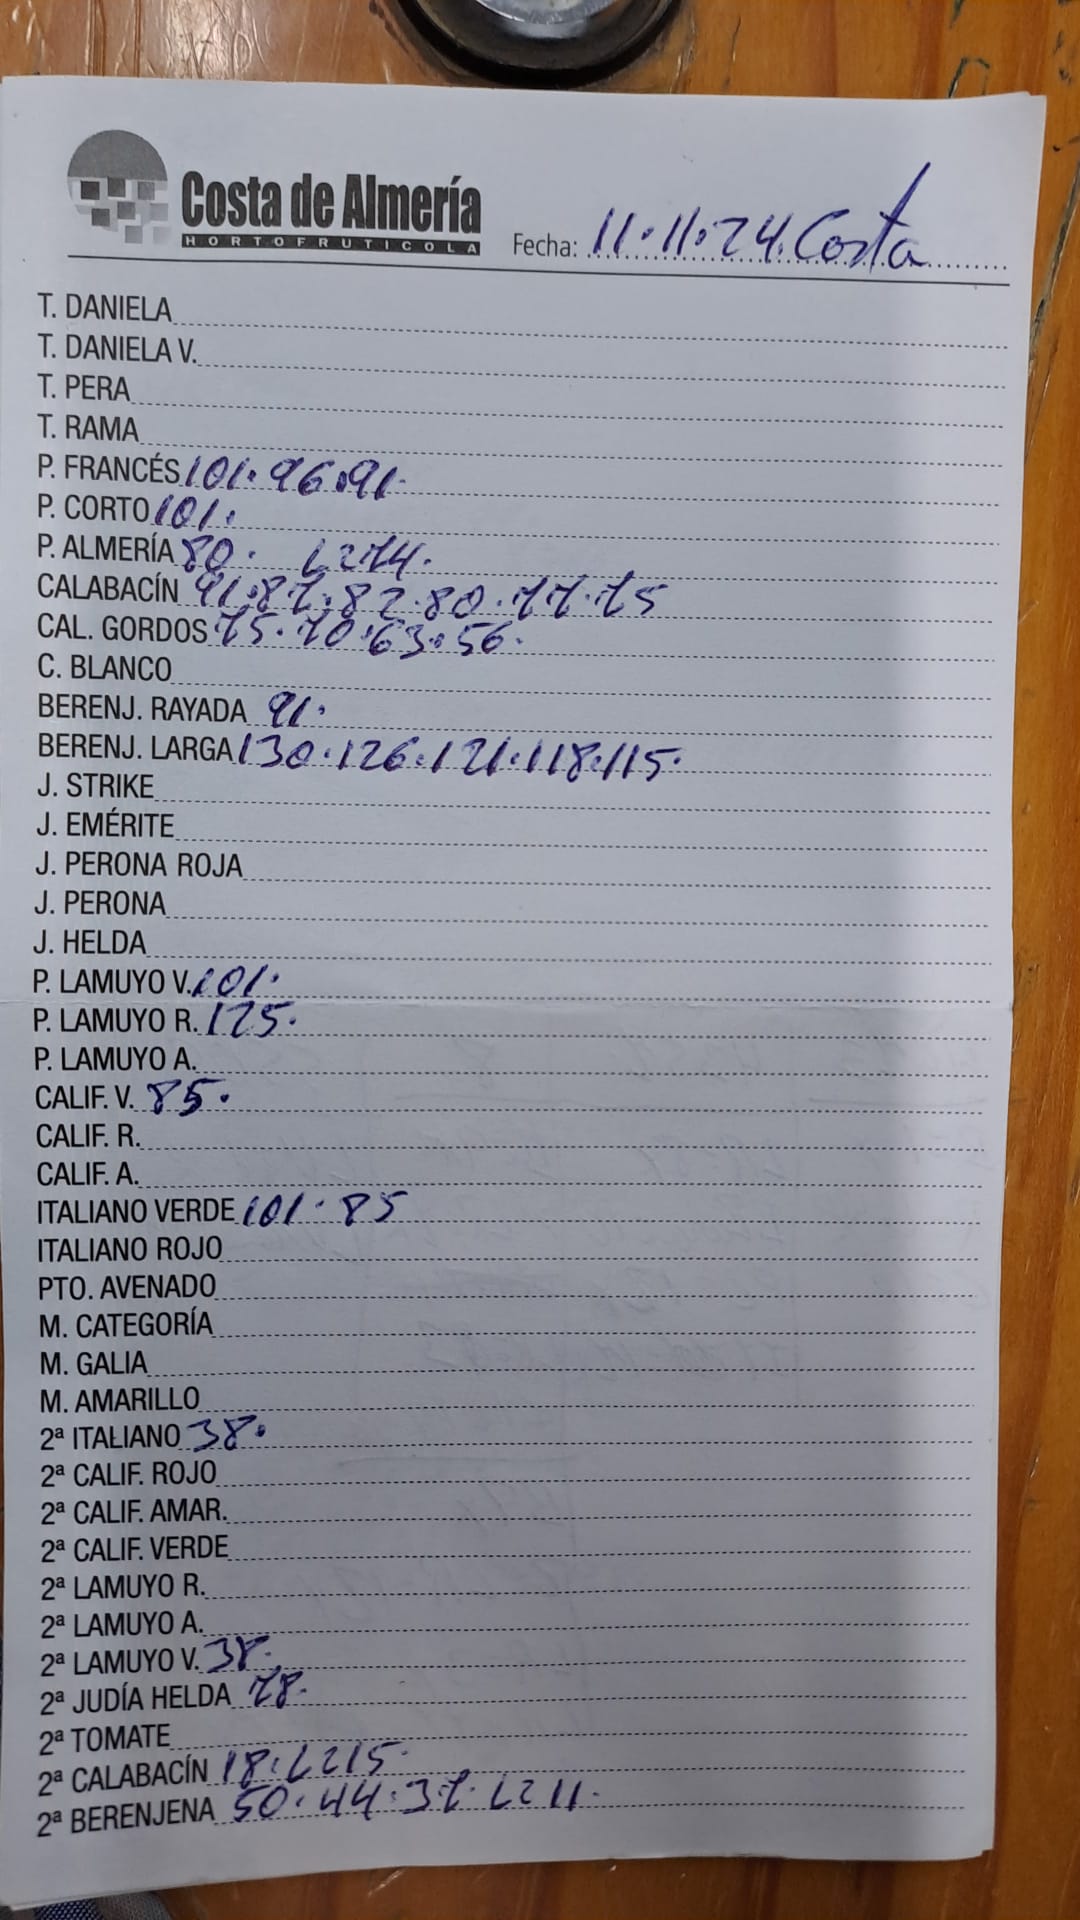 Costa de Almería
HORTOFRUTICOLA
Fecha: 11.11.24. Costa
T. DANIELA
T. DANIELA V.
T. PERA
T. RAMA
P. FRANCÉS 101.96.91.
P. CORTO 101.
P. ALMERÍA 80.
CALABACÍN 91.87.82.80.77.75
CAL. GORDOS 75.70.63.56.
C. BLANCO
BERENJ. RAYADA 91.
BERENJ. LARGA 130.126.121.118.115.
J. STRIKE
J. EMÉRITE
J. PERONA ROJA
J. PERONA
J. HELDA
P. LAMUYO V. 101.
P. LAMUYO R. 125.
P. LAMUYO A.
CALIF. V. 85.
CALIF. R.
CALIF. A.
ITALIANO VERDE 101.85
ITALIANO ROJO
PTO. AVENADO
M. CATEGORÍA
M. GALIA
M. AMARILLO
2ª ITALIANO 38.
2ª CALIF. ROJO
2ª CALIF. AMAR.
2ª CALIF. VERDE
2ª LAMUYO R.
2ª LAMUYO A.
2ª LAMUYO V. 38.
2ª JUDÍA HELDA 78.
2ª TOMATE
2ª CALABACÍN 18.
2ª BERENJENA 50.44.37.